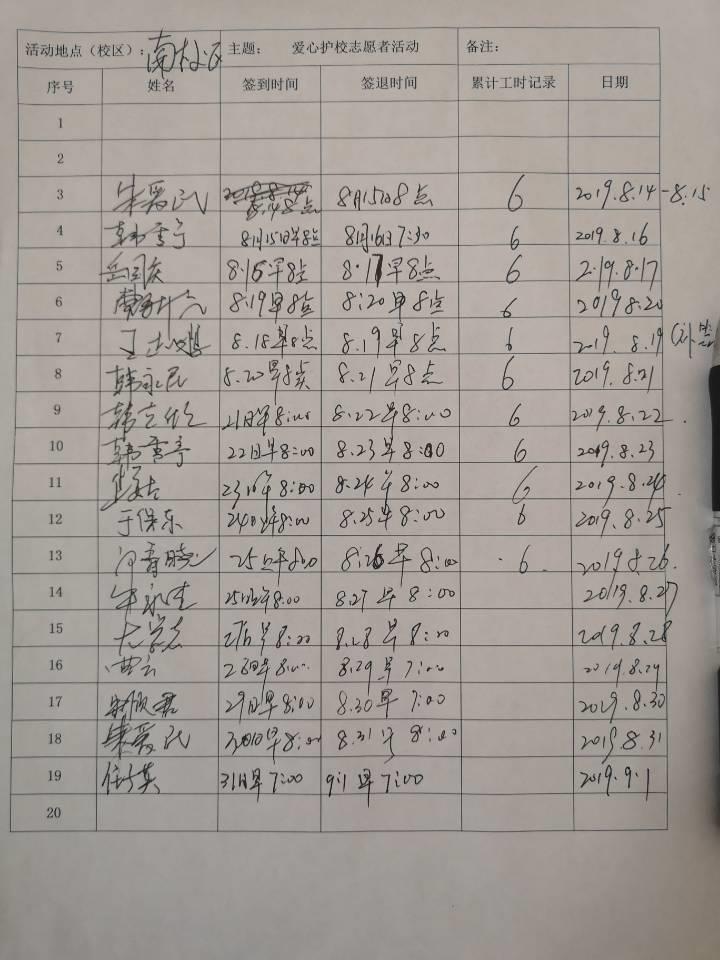 活动地点（校区）：南校区 主题： 爱心护校志愿者活动 备注：
序号 姓名 签到时间 签退时间 累计工时记录 日期
1
2
3 朱爱民 8.14 8点 8月15日8点 6 2019.8.14-8.15
4 韩秀亭 8月15日早8点 8月16日7:30 6 2019.8.16
5 8.16早8点 8.17早8点 6 2019.8.17
6 8.19早8点 8:20早8点 6 2019 8.20
7 8.18早8点 8.19早8点 6 2019. 8.19
8 韩永民 8.20早8点 8.21早8点 6 2019.8.21
9 21日早8:00 8.22早8:00 6 2019.8.22.
10 韩秀亭 22日早8:00 8.23早8:00 6 2019.8.23
11 23日早8:00 8.24早8:00 6 2019.8.24.
12 于保东 24日早8:00 8.25早8:00 6 2019.8.25
13 25日早8:00 8.26早8:00 6. 2019.8.26.
14 8.27早8:00 2019.8.27
15 早8:00 8.28早8:00 2019.8.28
16 曲云 28日早8:00 8.29早7:00 2019.8.29
17 29日早8:00 8.30早7:00 2019.8.30
18 朱爱民 30日早8:00 8.31早8:00 2019.8.31
19 31日早7:00 9.1早7:00 2019.9.1
20